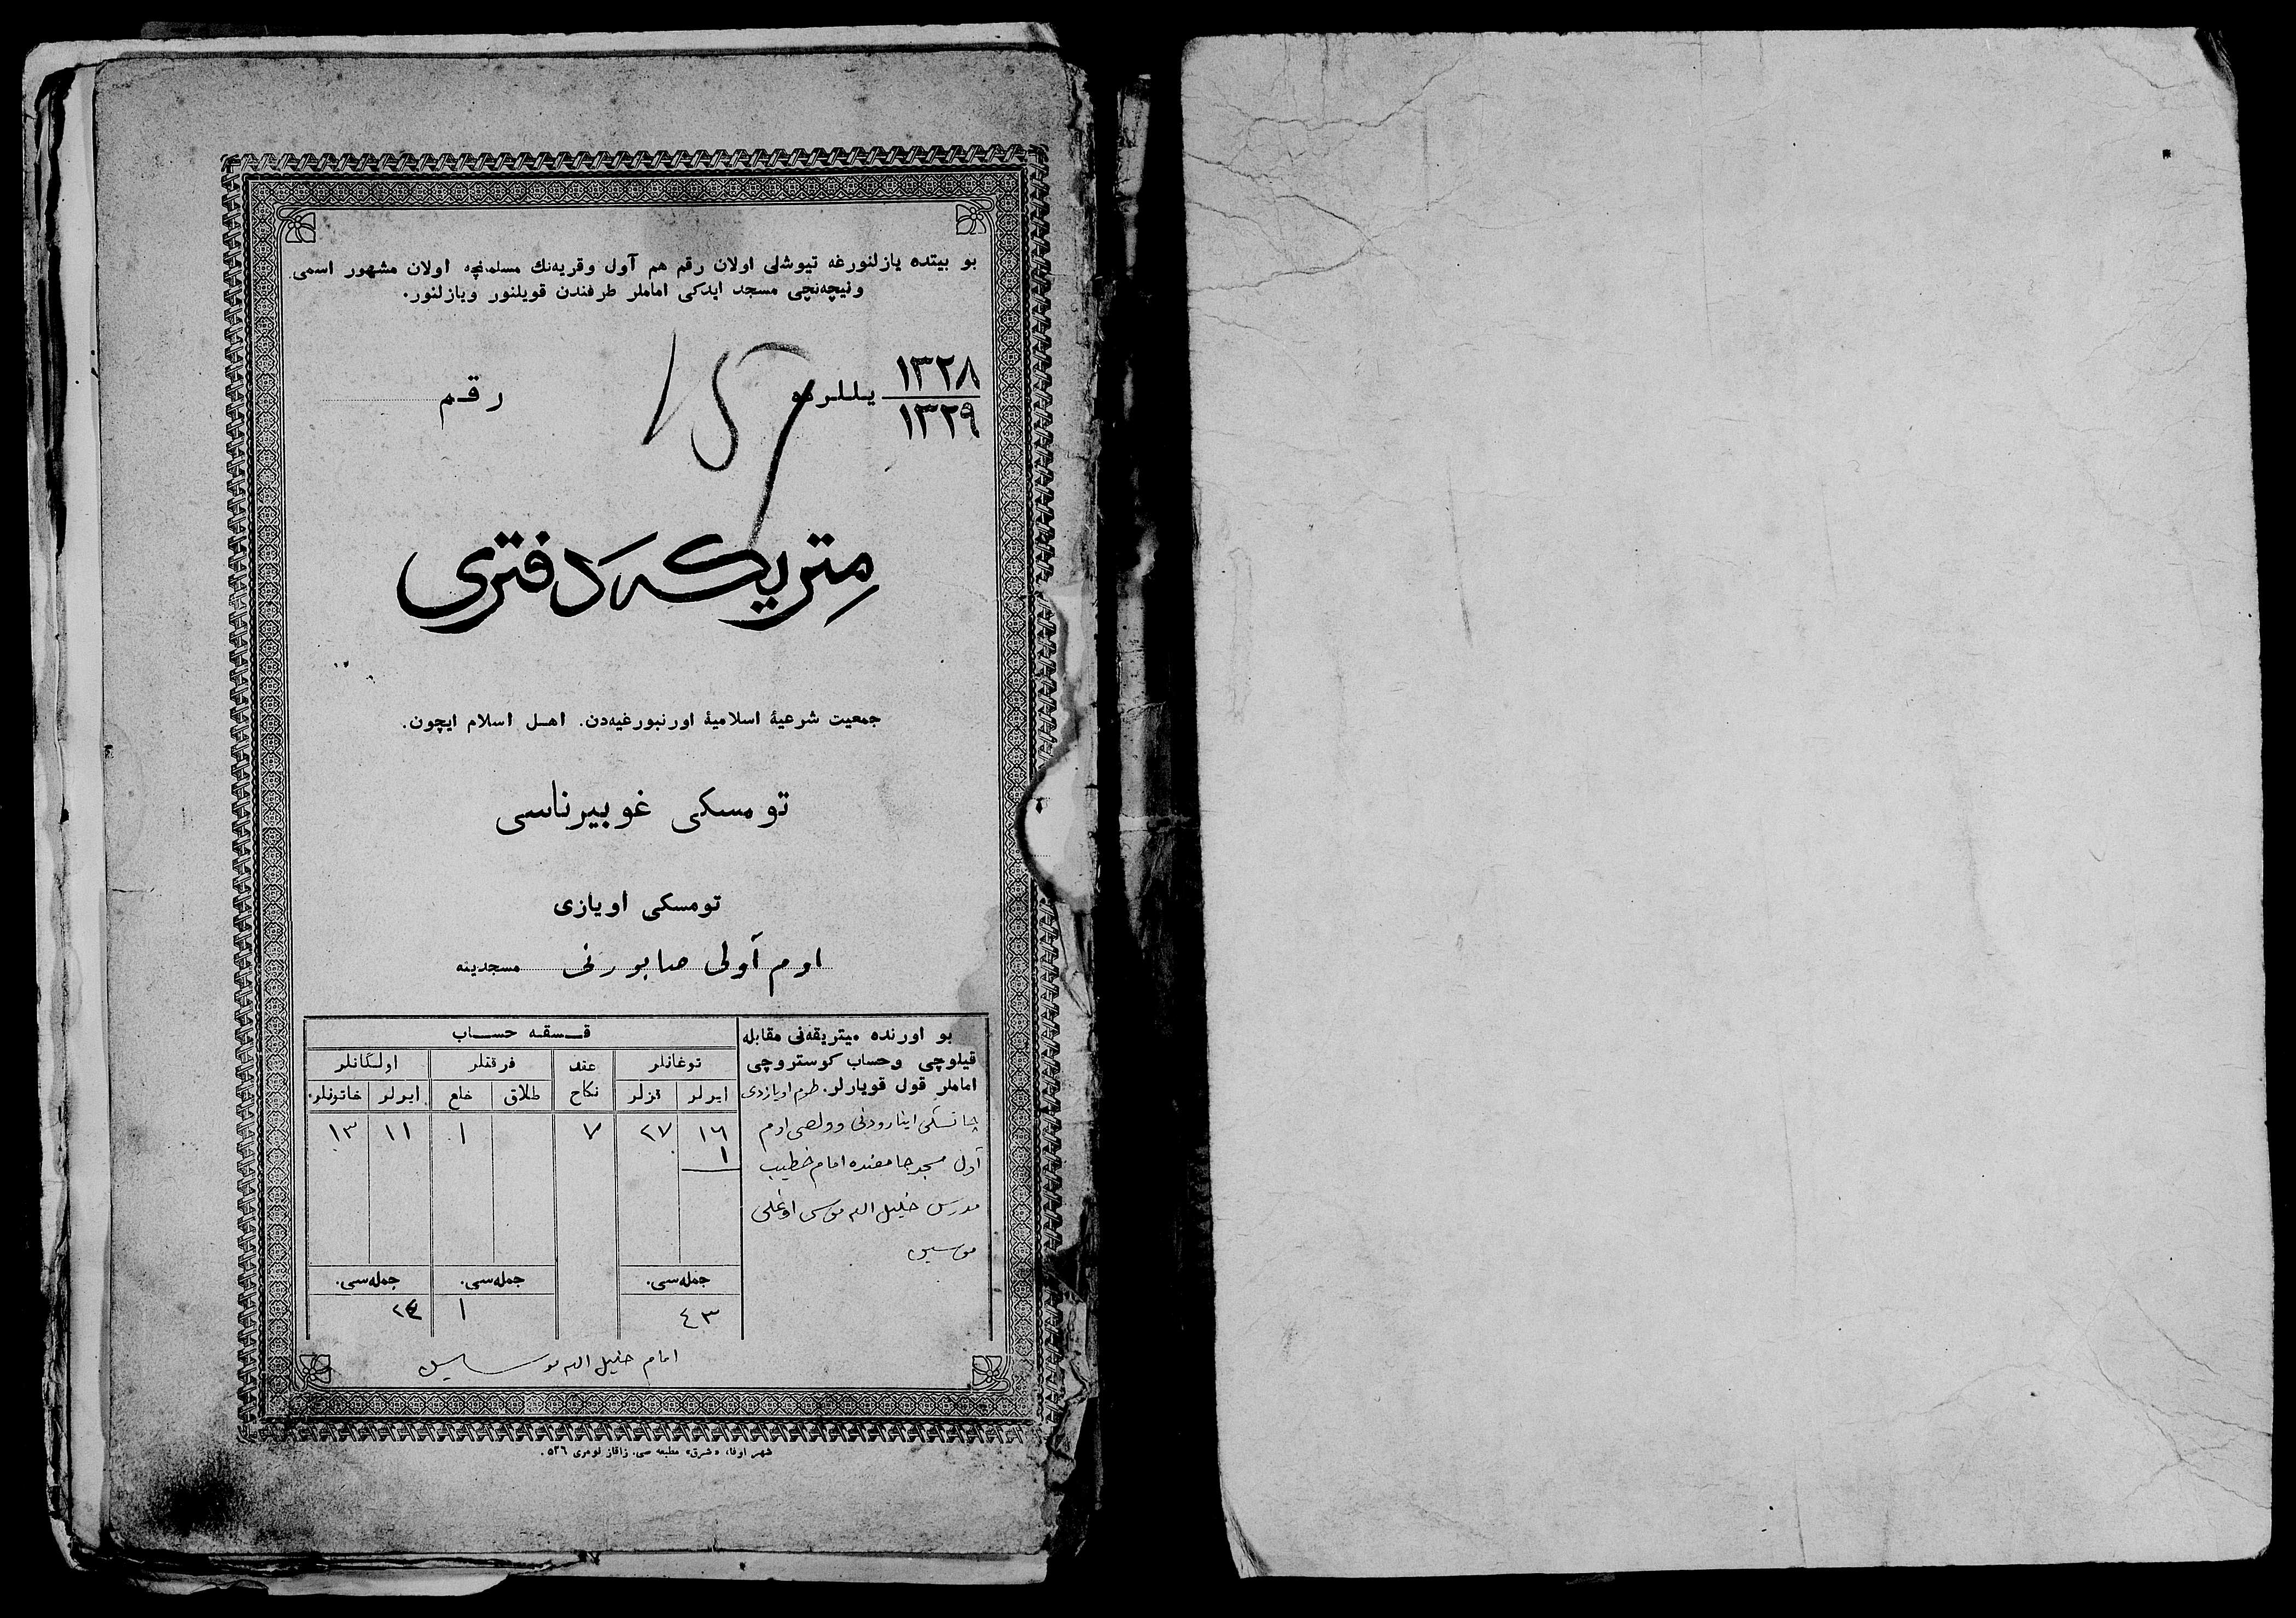 بو بیتده یازلنورغه تیوشلی اولان رقم هم آول وقریه‌نك مسلمانچه اولان مشهور اسمی
ونیچه‌نچی مسجد ایدکی اماملر طرفندن قویلنور ویازلنور.
۱۳۲۸
۱۳۲۹
یللرده
رقم
متریکه دفتری
جمعیت شرعیهٔ اسلامیهٔ اورنبورغیه‌دن. اهل اسلام ایچون.
تومسکی غوبیرناسی
تومسکی اویازی
اوم آولی صابورنی مسجدینه
بو اورنده میتریقه‌نی مقابله
قیلوچی وحساب کوستروچی
اماملر قول قویارلر. طوم اویازدی
اینارودنی وولصی اوم
آول مسجد جامعنده امام خطیب
مدرس خلیل الله موسی اوغلی
موسین
قسقه حساب
توغانلر
عقد نکاح
فرقتلر
اولگانلر
ایرلر
قزلر
طلاق
خلع
ایرلر
خاتونلر.
۱۶
۲۷
۷
۱
۱۱
۱۳
۱
جمله‌سی.
جمله‌سی.
جمله‌سی.
٤۳
۱
۲٤
امام خلیل الله موسین
شهر اوفا، «شرق» مطبعه سی. زاقاز نومری ۵۳۶.